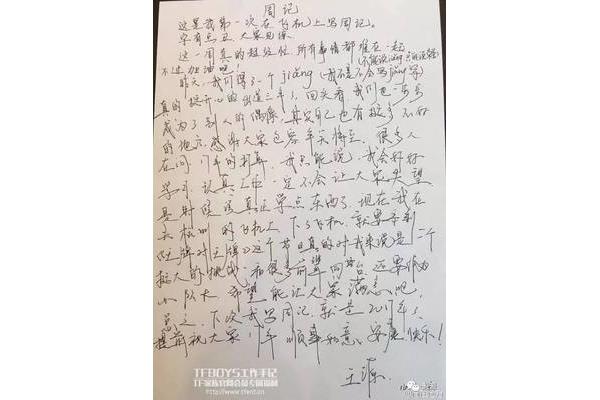 周记
这是我第一次在飞机上写周记。
字有点丑 大家见谅
这一周真的超级忙 所有事情都堆在一起
(不能说jiāng 只能说奖)
不过加油吧
昨天,我们得了一个jiǎng (我不是不会写jiǎng字)
真的挺开心的 出道三年了,回头看我们也一步步
成为了别人的偶像,其实自己也有挺多不好
的地方,感谢大家包容 年末将至,很多人
在问17年的计划,我只能说,我会好好
学习,认真工作 一定不会让大家失望
是时候该真正学点东西了,现在我在
去杭州的飞机上 下了飞机,就要录制
《王牌对王牌》这个节目 真的对我来说是一个
挺大的挑战,和很多前辈同台 还要作为
小队长,希望能让大家满意吧,
总之,下次我写周记,就是2017年了,
提前祝大家,17年 顺事如意、安康快乐!
王源.
TFBOYS工作手记
TF家族官网会员专属福利
www.tfent.cn